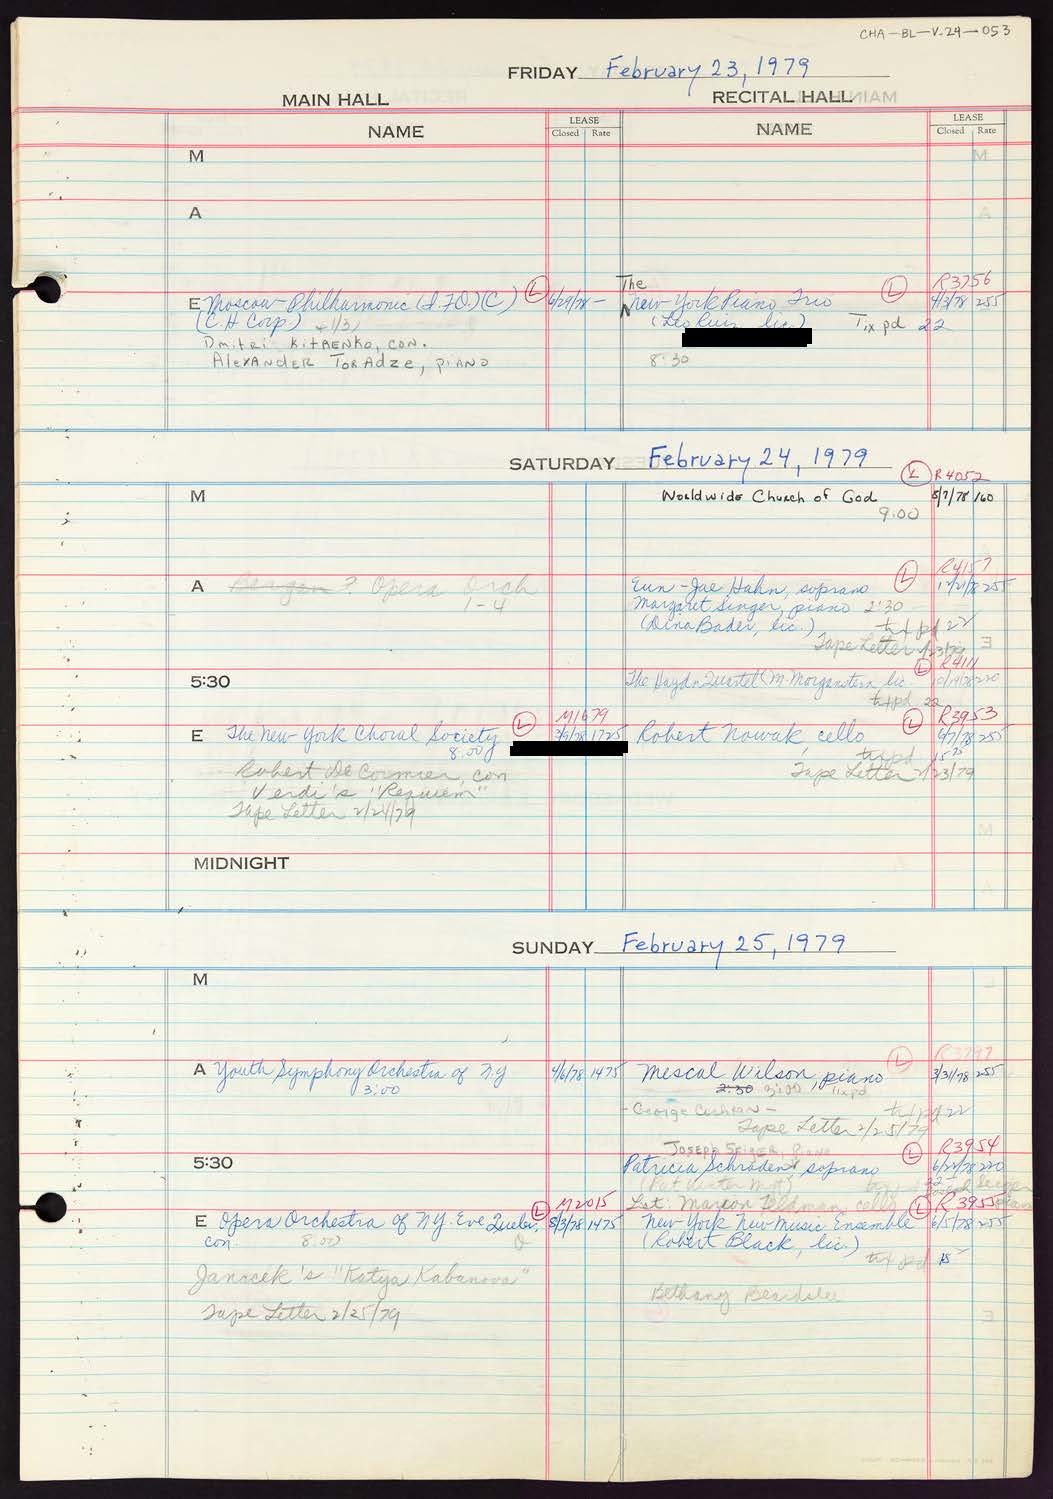 CHA-BL-V.24-053
FRIDAY February 23, 1979
MAIN HALL RECITAL HALL
NAME LEASE Closed Rate NAME LEASE Closed Rate
M
A
R3756
The
E Moscow Philharmonic (I.F.O.)(C) L 6/29/78 - New York Piano Trio L 4/3/78 255
(C.H Corp) +1/3) lic.) Tix pd 22
Dmitri Kitaenko, con.
Alexander Toradze, piano 8:30
SATURDAY February 24, 1979
L R4052
M Worldwide Church of God 8/7/78 160
9:00
L R4157
A Opera Orch Eun-Jae Hahn, soprano 255
1-4 Margaret Singer, piano 2:30
(Dina Bader, lic.) tix pd 22
Tape Letter 2/23/79
L R4111
5:30 The Haydn Quartet (M. Morganstern, lic. 10/19/78 220
tix pd 22
L M1679 L R3953
E The New York Choral Society 3/9/78 1725 Robert Nowak, cello 6/7/78 255
8:00 tix pd 15
Robert De Cormier, con Tape Letter 2/23/79
Verdi's "Requiem"
Tape Letter 2/24/79
MIDNIGHT
SUNDAY February 25, 1979
M
L R3797
A Youth Symphony Orchestra of N.Y 4/6/78 1475 Mescal Wilson, piano 3/31/78 255
3:00 2:30 3:00 Tix pd
tix pd 22
Tape Letter 2/25/79
Joseph Seiger, piano L R3954
5:30 Patricia Schraden, soprano 6/22/78 220
L M2015 L R3955
E Opera Orchestra of N.Y. Eve Queler, 8/3/78 1475 New York New Music Ensemble 6/5/78 255
con. 8:00 (Robert Black, lic.)
tix pd 15
Janacek's "Katya Kabanova"
Bethany Beardslee
Tape Letter 2/25/79